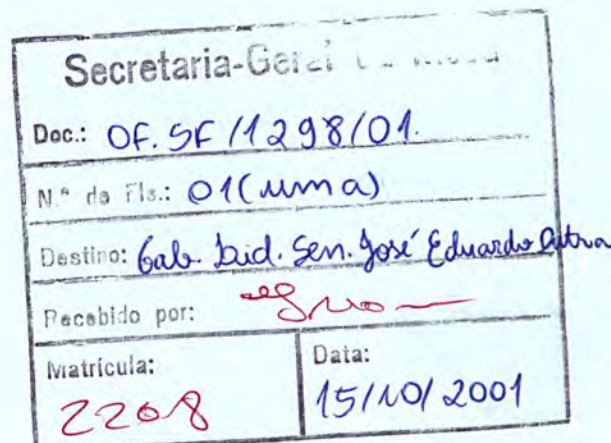 Secretaria-Geral
Doc.: OF. SF /1298/01.
N.º de Fls.: 01 (uma)
Destino: Gab. Lid. Sen. José Eduardo Dutra
Recebido por:
Matrícula: 2208
Data: 15/10/2001